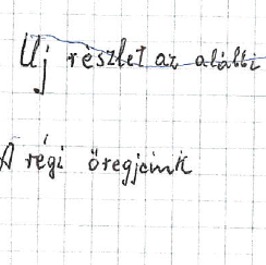 Uj részlet az alábbi
A régi öregjeink